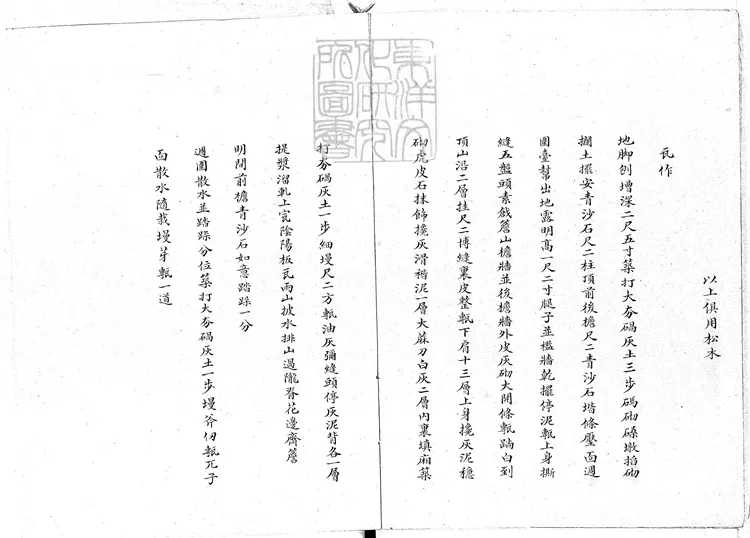 以上俱用松木
瓦作
地脚刨增深二尺五寸築打大夯碢灰土三步碼砌磉墩掐砌
攔土擺安青沙石尺二柱頂前後檐尺二青沙石堦條壓面週
圍臺幫出地露明高一尺二寸腿子並檻牆乾擺停泥甎上身撕
縫五盤頭素戧簷山檐牆並後檐牆外皮灰砌大開條甎踏白到
頂山沿二層挂尺二博縫裏皮整甎下肩十三層上身攙灰泥穩
砌虎皮石抹飾攙灰滑稭泥一層大蔴刀白灰二層內裏填廂築
打夯碢灰土一步細墁尺二方甎油灰彌縫頭停灰泥背各一層
提漿溜軋上宽陰陽板瓦兩山披水排山過隴脊花邊齊簷
明間前檐青沙石如意踏跺一分
週圍散水並踏跺分位築打大夯碢灰土一步墁斧刃甎兀子
面散水隨栽墁芽甎一道
東洋文
化研究
所圖書